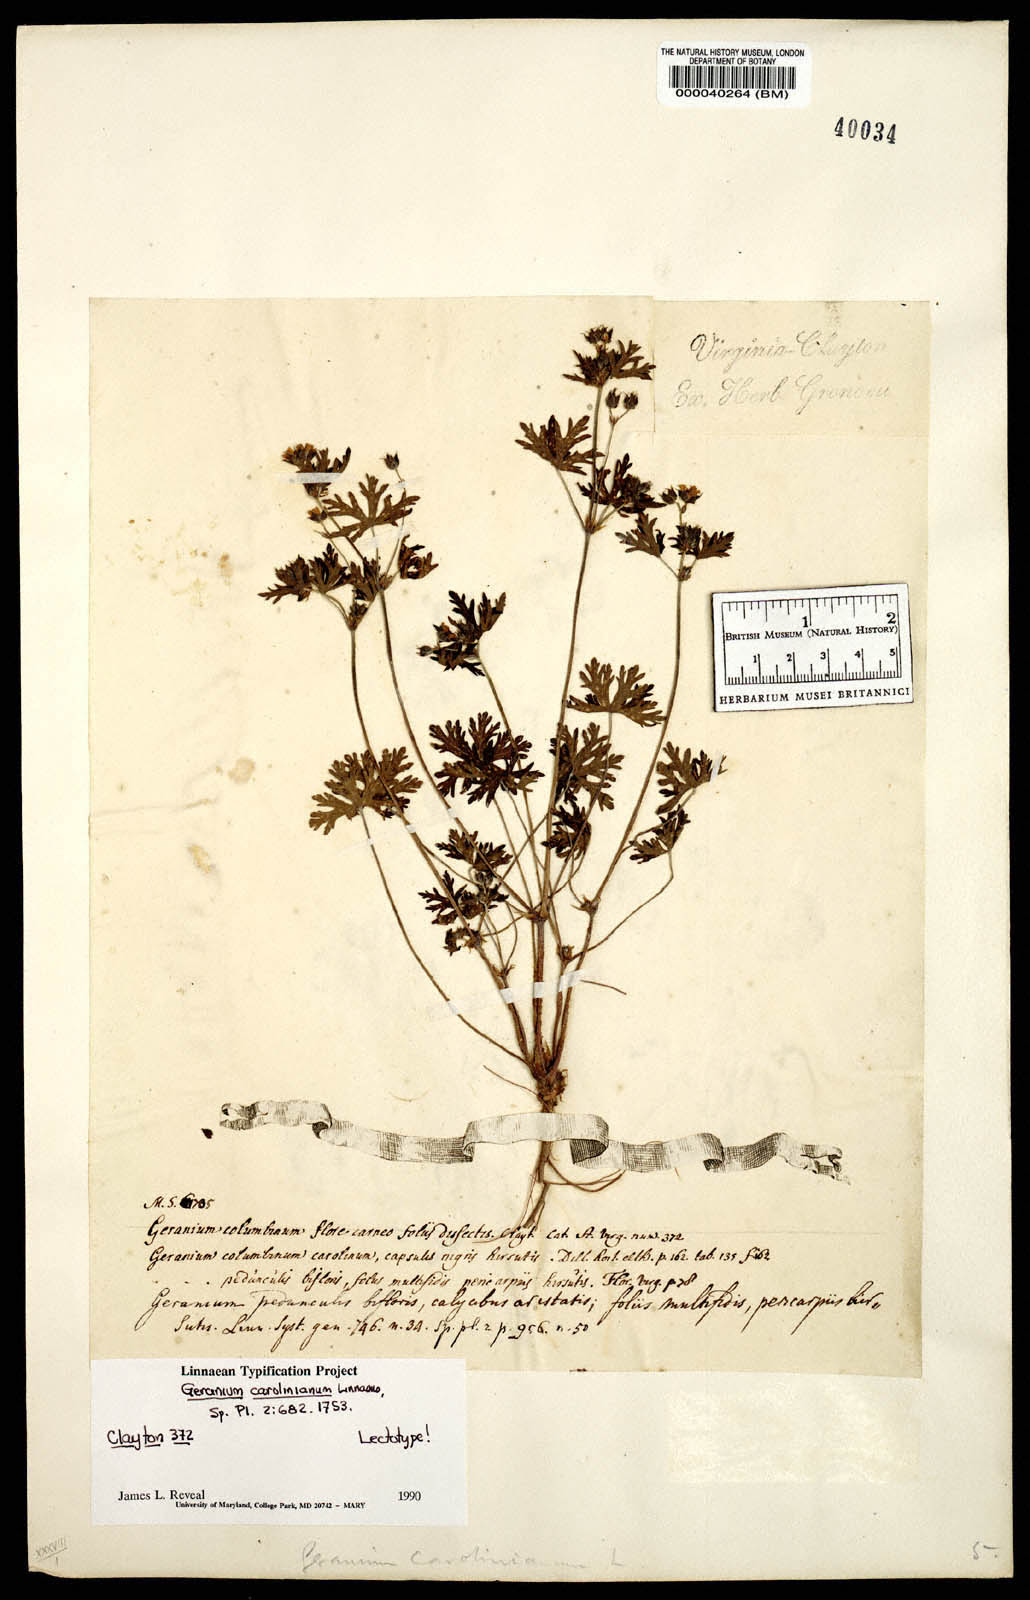 THE NATURAL HISTORY MUSEUM, LONDON
DEPARTMENT OF BOTANY
000040264 (BM)
40034
Virginia - Clayton
Ex. Herb Gronovii
1 2
BRITISH MUSEUM (NATURAL HISTORY)
1 2 3 4 5
HERBARIUM MUSEI BRITANNICI
M. S. 705
Geranium columbinum flore carneo foliis dissectis. Clayt. Cat. St. Virg. num. 372
Geranium columbinum carolinum, capsulis nigris hirsutis. Dill. hort. elth. p. 162. tab. 135 f 162
. . . pedunculis bifloris, foliis multifidis pericarpiis hirsutis. Flor. Virg. p 78
Geranium pedunculis bifloris, calycibus aristatis; foliis multifidis, pericarpiis hir-
sutis. Linn. Syst. gen. 746. n. 34. Sp. pl. 2 p. 956. n. 50
Linnaean Typification Project
Geranium carolinianum Linnaeus,
Sp. Pl. 2:682. 1753.
Clayton 372 Lectotype!
James L. Reveal 1990
University of Maryland, College Park, MD 20742 – MARY
XXXVIII
1
Geranium carolinianum L.
5.